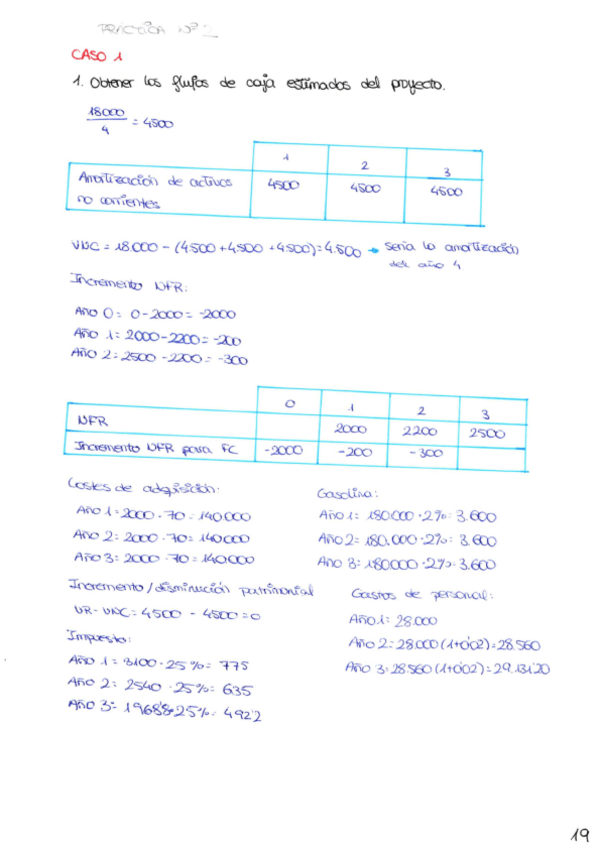 PRÁCTICA Nº 2
CASO 1
1. Obtener los flujos de caja estimados del proyecto.
18000 / 4 = 4500
1 2 3
Amortización de activos no corrientes 4500 4500 4500
VNC = 18.000 - (4.500 + 4500 + 4500) = 4.500 → sería la amortización
del año 4
Incremento NFR:
Año 0 = 0 - 2000 = -2000
Año 1 = 2000 - 2200 = -200
Año 2 = 2500 - 2200 = -300
0 1 2 3
NFR 2000 2200 2500
Incremento NFR para FC -2000 -200 -300
Costes de adquisición:
Año 1 = 2000 · 70 = 140000
Año 2 = 2000 · 70 = 140000
Año 3 = 2000 · 70 = 140000
Gasolina:
Año 1 = 180.000 · 2% = 3.600
Año 2 = 180.000 · 2% = 3.600
Año 3 = 180000 · 2% = 3.600
Incremento/disminución patrimonial
VR - VNC = 4500 - 4500 = 0
Gastos de personal:
Año 1 = 28.000
Año 2 = 28.000 (1+0'02) = 28.560
Año 3 = 28.560 (1+0'02) = 29.131'20
Impuesto:
Año 1 = 3100 · 25% = 775
Año 2 = 2540 · 25% = 635
Año 3 = 1968'8 · 25% = 492'2
19